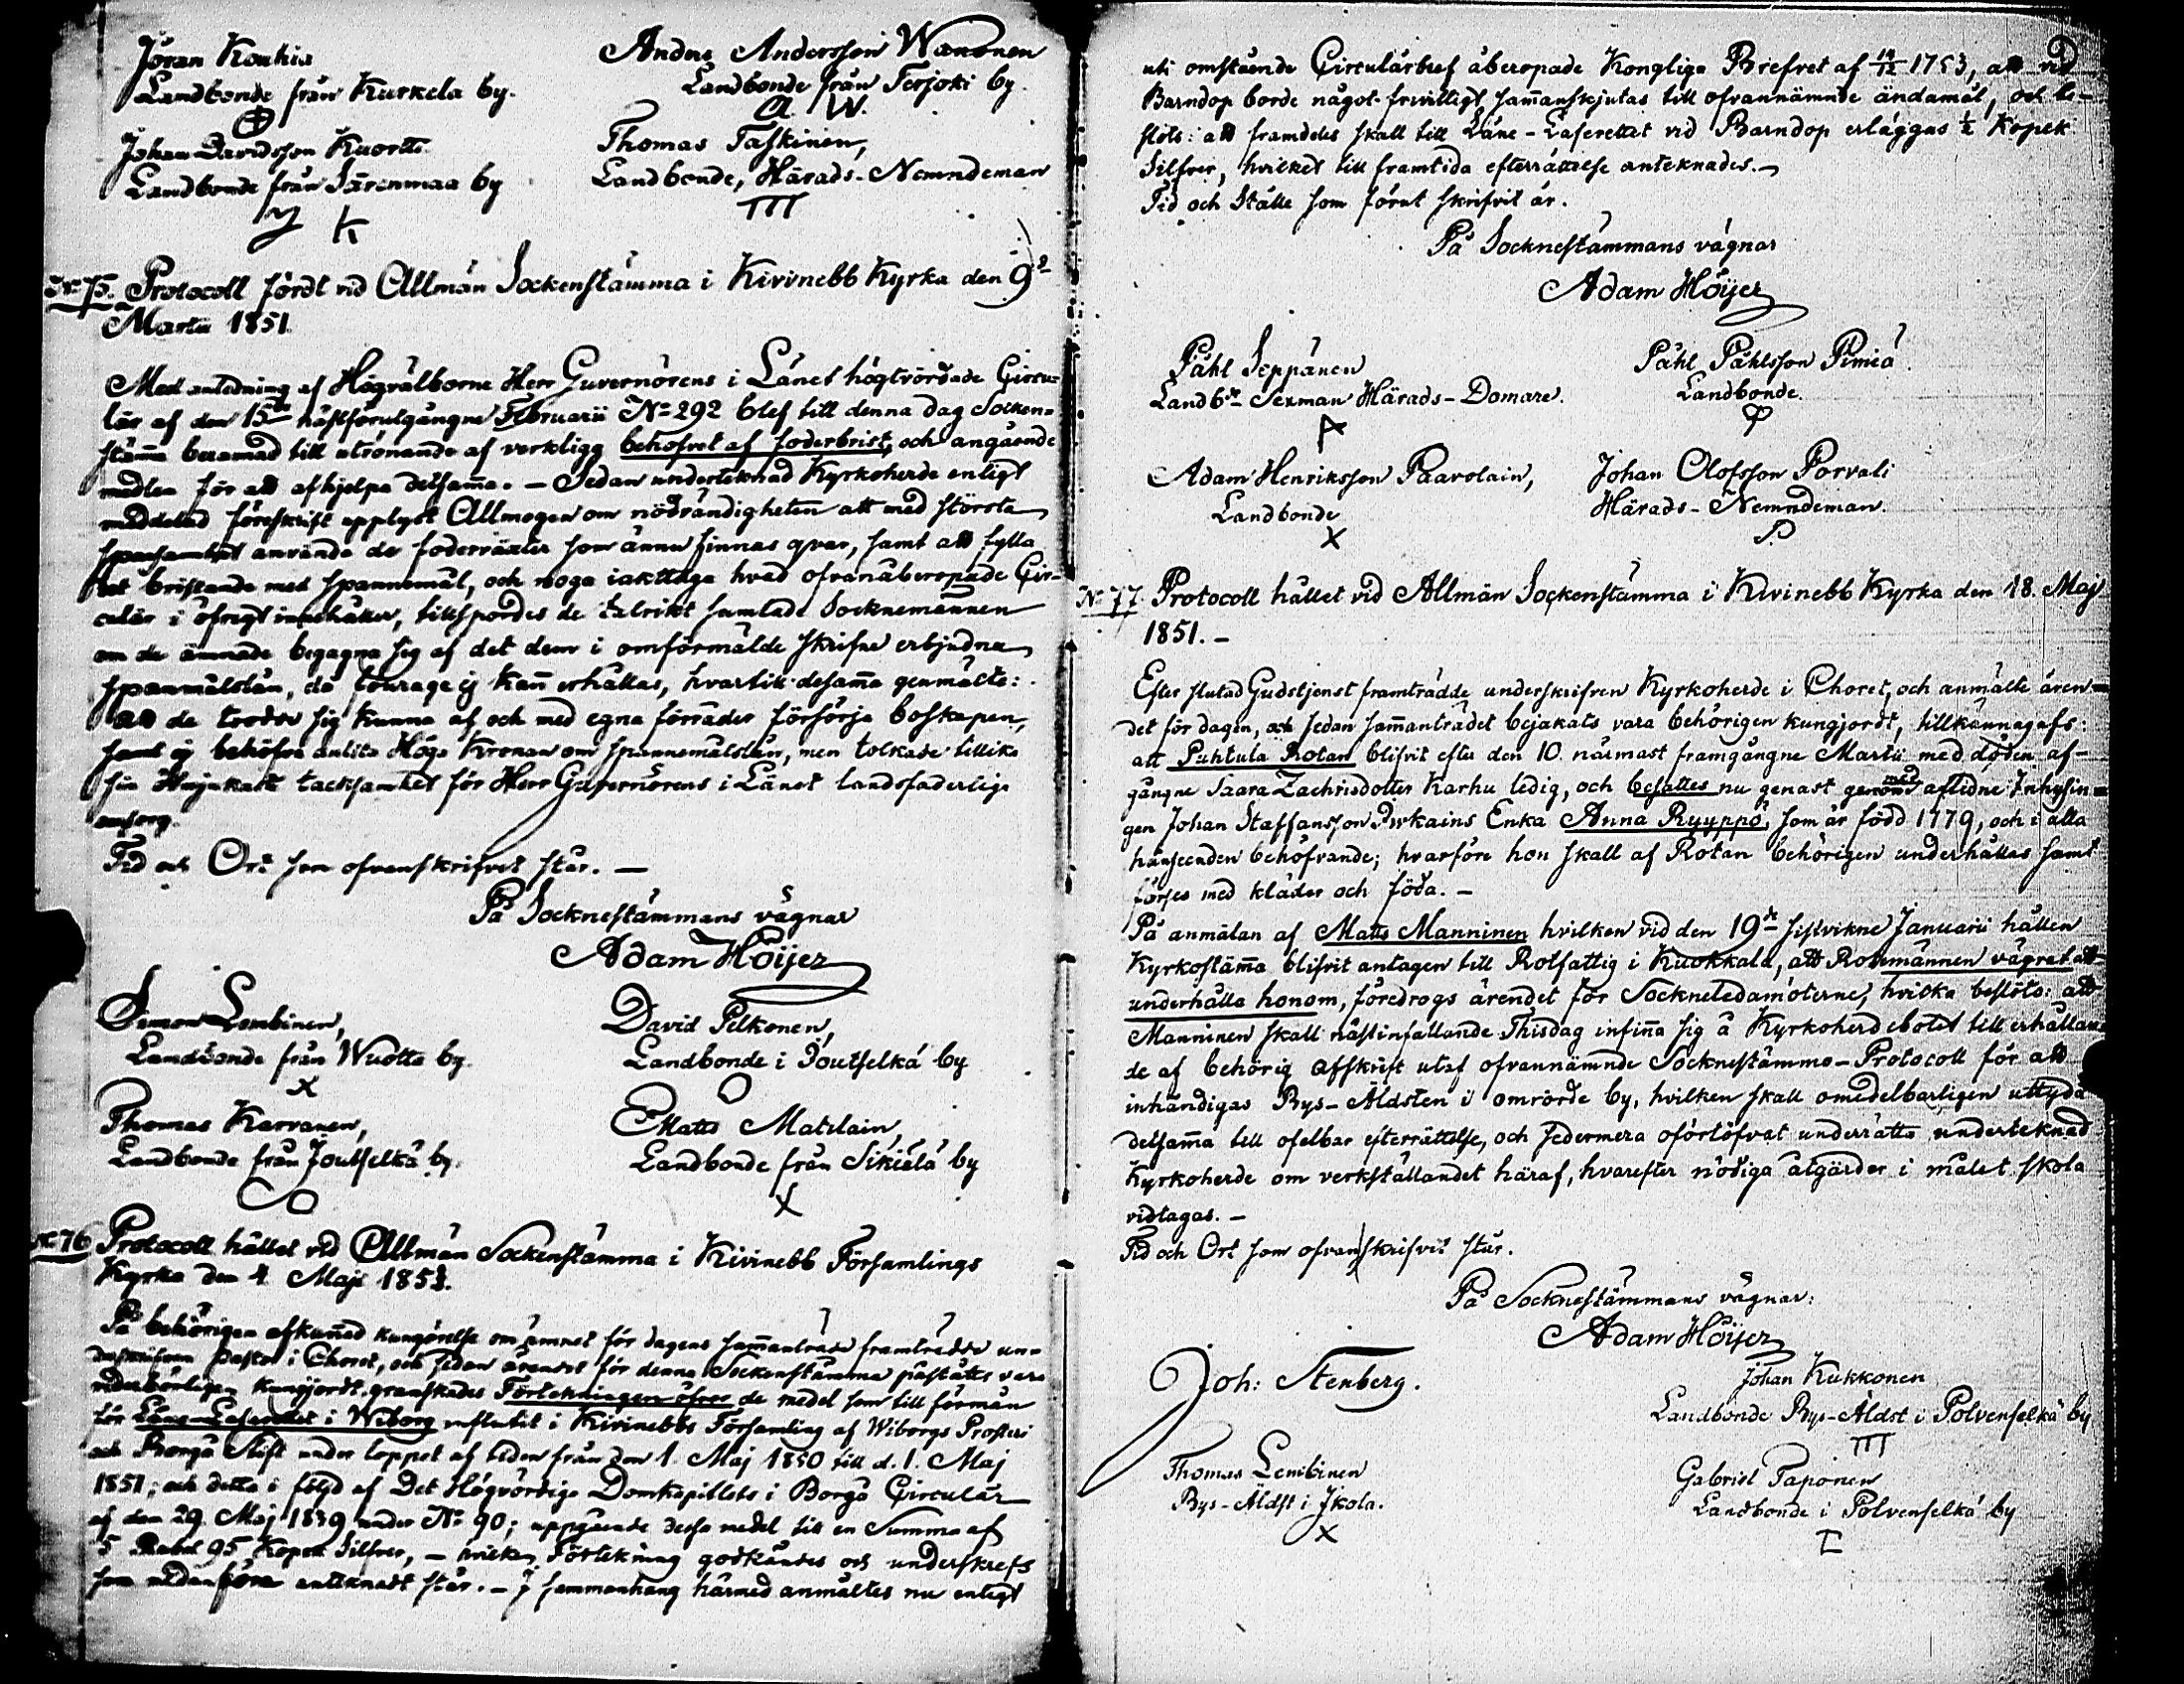 Jöran Koukia
Landbonde från Kurkela by.
Anders Andersson Wanonen
Landbonde från Terjoki by.
A. W.
Johan Davidsson Kuortti
Landbonde från Särenmaa by
K
Thomas Taskinen,
Landbonde, Härads-Nemndeman
III
No 75. Protocoll fördt vid Allmän Sockenstämma i Kivinebb Kyrka den 9de
Martii 1851.
Med anledning af Högvälborne Herr Guvernörens i Länet högtvördade Circu-
lär af den 15de nästförutgångne Februarii No 292 blef till denna dag Socken-
stäma beramad till utrönande af verkligg behofvet af foderbrist, och angående
medlen för att afhjelpa detsama. - Sedan underteknad Kyrkoherde enligt
meddelad föreskrift upplyst Allmogen om nödvändigheten att med största
sparsamhet använda de foderväxter som ännu finnas qvar, samt att fylla
det bristande med spannemål, och noga iakttaga hvad ofvanåberopade Cir-
culär i öfrigt innehåller, tillspordes de talrikt samlade Socknemännen
om de ämnade begagna sig af det dem i omförmälde skrifne erbjudna
spanmålslån, då fourage ej kan erhållas, hvartill desama genmälte:
att de trodde sig kunna af och med egna förråder försörja boskapen,
samt ej behöfva anlita Höga Kronan om spannemålslån, men tolkade tillika
sin ödmjukaste tacksamhet för Herr Guvernörens i Länet landsfaderliga
omsorg.
Tid och Ort som ofvanskrifvet står. —
På Socknestämmans vägnar
Adam Höijer
Simon Lembinen,
Landbonde från Wuotta by.
X
David Pelkonen,
Landbonde i Joutselkä by
O
Thomas Karvanen,
Landbonde från Joutselkä by.
Matts Matilain,
Landbonde från Sikiälä by
X
No 76 Protocoll hållet vid Allmän Sockenstämma i Kivinebb Församlings
Kyrka den 4. Maji 1851.
På behörigen afkunnad kungörelse om ämnet för dagens samanträde framträdde un-
derskrifven Pastor i Choret, och sedan ärendet för denna Sockenstämma påståtts vara
vederbörligen kungjordt, granskades Förtekningen öfver de medel som till förmån
för Läns-Lasarettet i Wiborg influtit i Kivinebbs Församling af Wiborgs Prosteri
och Borgå Stift under loppet af tiden från den 1 Maj 1850 till d. 1. Maj
1851; och detta i följd af Det Högvördige Domkapitlets i Borgå Circulär
af den 29. Maj 1839 under No 90; uppgående dessa medel till en Summa af
5 Rubel 95 Kopek Silfver, - hvilken Förtekning godkändes och underskrefs
som nedanföre anteknadt står. - I sammanhang härmed anmältes nu enligt
uti omstående Circulärbref åberopade Kongliga Brefvet af 14/12 1753, att vid
Barndop borde något frivilligt samanskjutas till ofvannämnde ändamål, och be-
slöts: att framdeles skall till Läns-Lasarettet vid Barndop erläggas ½ Kopek
Silfver, hvilket till framtida efterrättelse anteknades. -
Tid och Ställe som förut skrifvit är.
På Socknestämmans vägnar
Adam Höijer
Påhl Seppänen
Landbde Sexman Härads-Domare.
Påhl Påhlsson Pimiä.
Landbonde.
Adam Henriksson Paavolain,
Landbonde
X
Johan Olofsson Porvali
Härads-Nemndeman.
P.
No 77. Protocoll hållet vid Allmän Sockenstämma i Kivinebb Kyrka den 18. Maj
1851. -
Efter slutad Gudstjenst framträdde underskrifven Kyrkoherde i Choret, och anmälte ären-
det för dagen, och sedan samanträdet bejakats vara behörigen kungjordt, tillkännagafs:
att Puhtula Rotan blifvit efter den 10. närmast framgångne Martii med döden af-
gångne Saara Zachrisdotter Karhu ledig, och besattes nu genast med aflidne Inhysin-
gen Johan Staffansson Pirkains Enka Anna Ryyppö, som är född 1779, och i alla
hänseenden behöfvande; hvarföre hon skall af Rotan behörigen underhållas samt
förses med kläder och föda. -
På anmälan af Matts Manninen hvilken vid den 19de sistvikne Januarii hållen
Kyrkostäma blifvit antagen till Rotfattig i Kuokkala, att Rotemännen vägrat att
underhålla honom, föredrogs ärendet för Sockneledamöterne, hvilka beslöto: att
Manninen skall nästinfallande Thisdag infina sig å Kyrkoherdebolet till erhållan-
de af behörig afskrift utaf ofvannämnde Socknestämmo-Protocoll för att
inhändigas Bys-Åldsten i omrörde by, hvilken skall omedelbarligen uttyda
detsama till ofelbar efterrättelse, och sedermera oförtöfvat underrätta underteknad
Kyrkoherde om verkställandet häraf, hvarefter nödiga åtgärder i målet skola
vidtagas. -
Tid och Ort som ofvanskrifvit står.
På Socknestämmans vägnar:
Adam Höijer
Joh: Stenberg.
Johan Kukkonen
Landbonde Bys-Äldst i Polvenselkä by
III
Thomas Lembinen
Bys-Äldst i Ikola.
X
Gabriel Taponen
Landbonde i Polvenselkä by